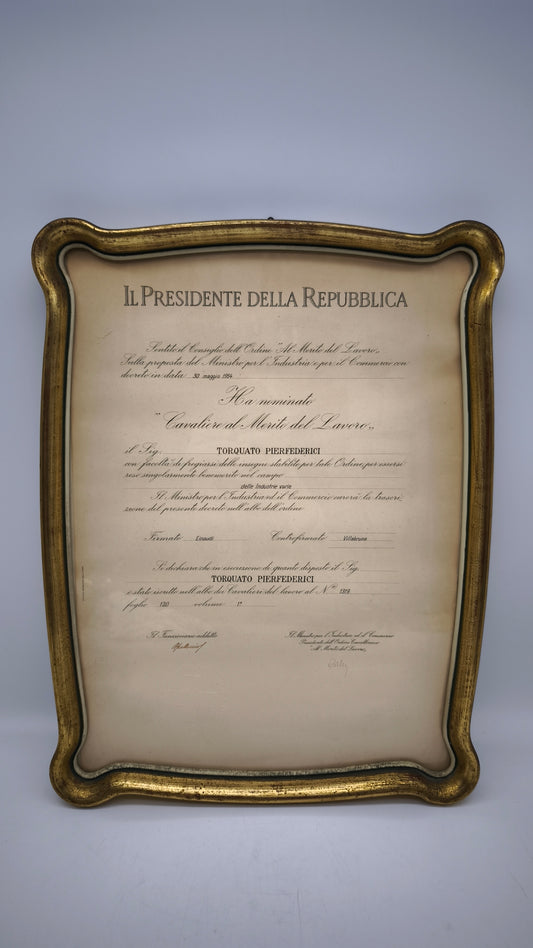 IL PRESIDENTE DELLA REPUBBLICA
Sentito il Consiglio dell'Ordine "Al Merito del Lavoro„
Sulla proposta del Ministro per l'Industria e per il Commercio con
decreto in data 30 maggio 1954
Ha nominato
"Cavaliere al Merito del Lavoro„
il Sig. TORQUATO PIERFEDERICI
con facoltà di fregiarsi delle insegne stabilite per tale Ordine, per essersi
reso singolarmente benemerito nel campo
delle Industrie varie
Il Ministro per l'Industria ed il Commercio curerà la trascri-
zione del presente decreto nell'albo dell'ordine
Firmato Einaudi Controfirmato Villabruna
Si dichiara che in esecuzione di quanto disposto il Sig.
TORQUATO PIERFEDERICI
è stato iscritto nell'albo dei Cavalieri del lavoro al N.ro
foglio 120 volume 1°
Il Funzionario addetto
Il Ministro per l'Industria ed il Commercio
Presidente dell'Ordine Cavalleresco
"Al Merito del Lavoro„